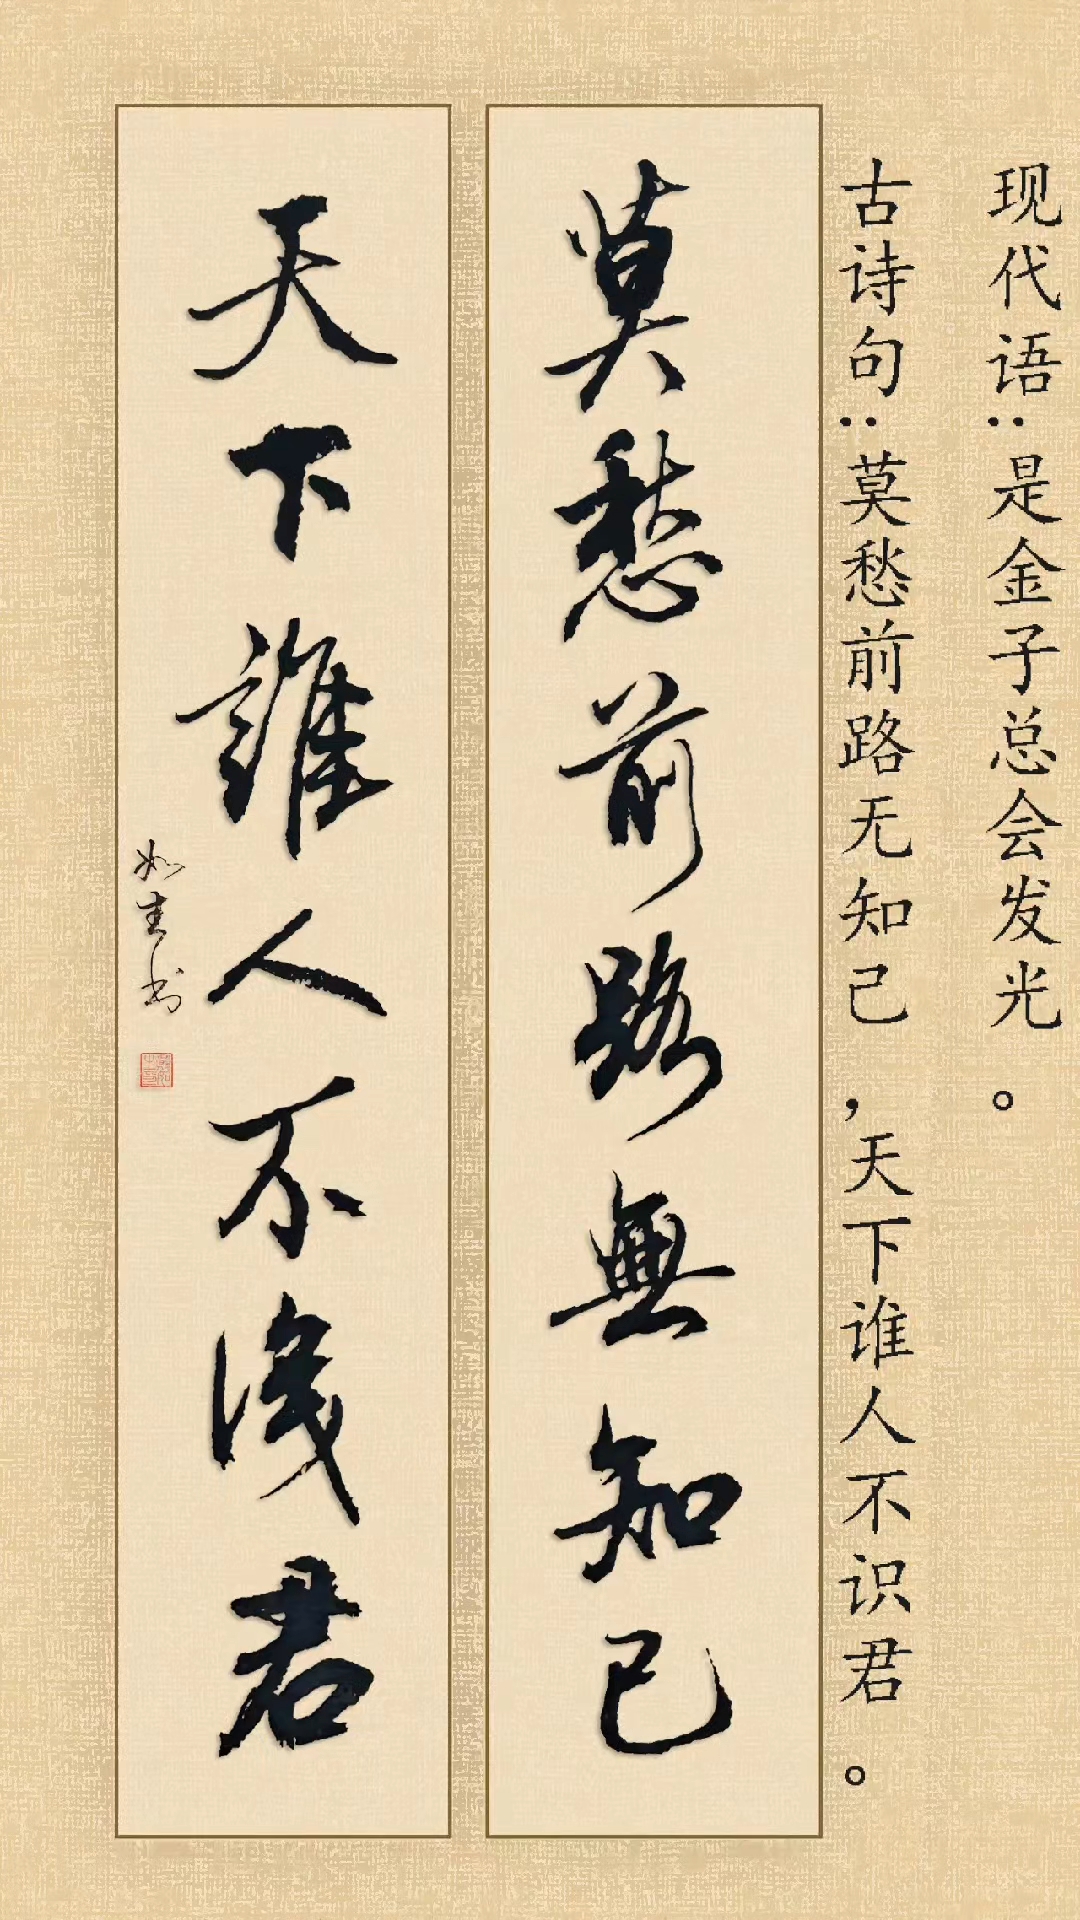 现代语:是金子总会发光。
古诗句:莫愁前路无知己,天下谁人不识君。
莫愁前路無知己
天下誰人不識君
如生书